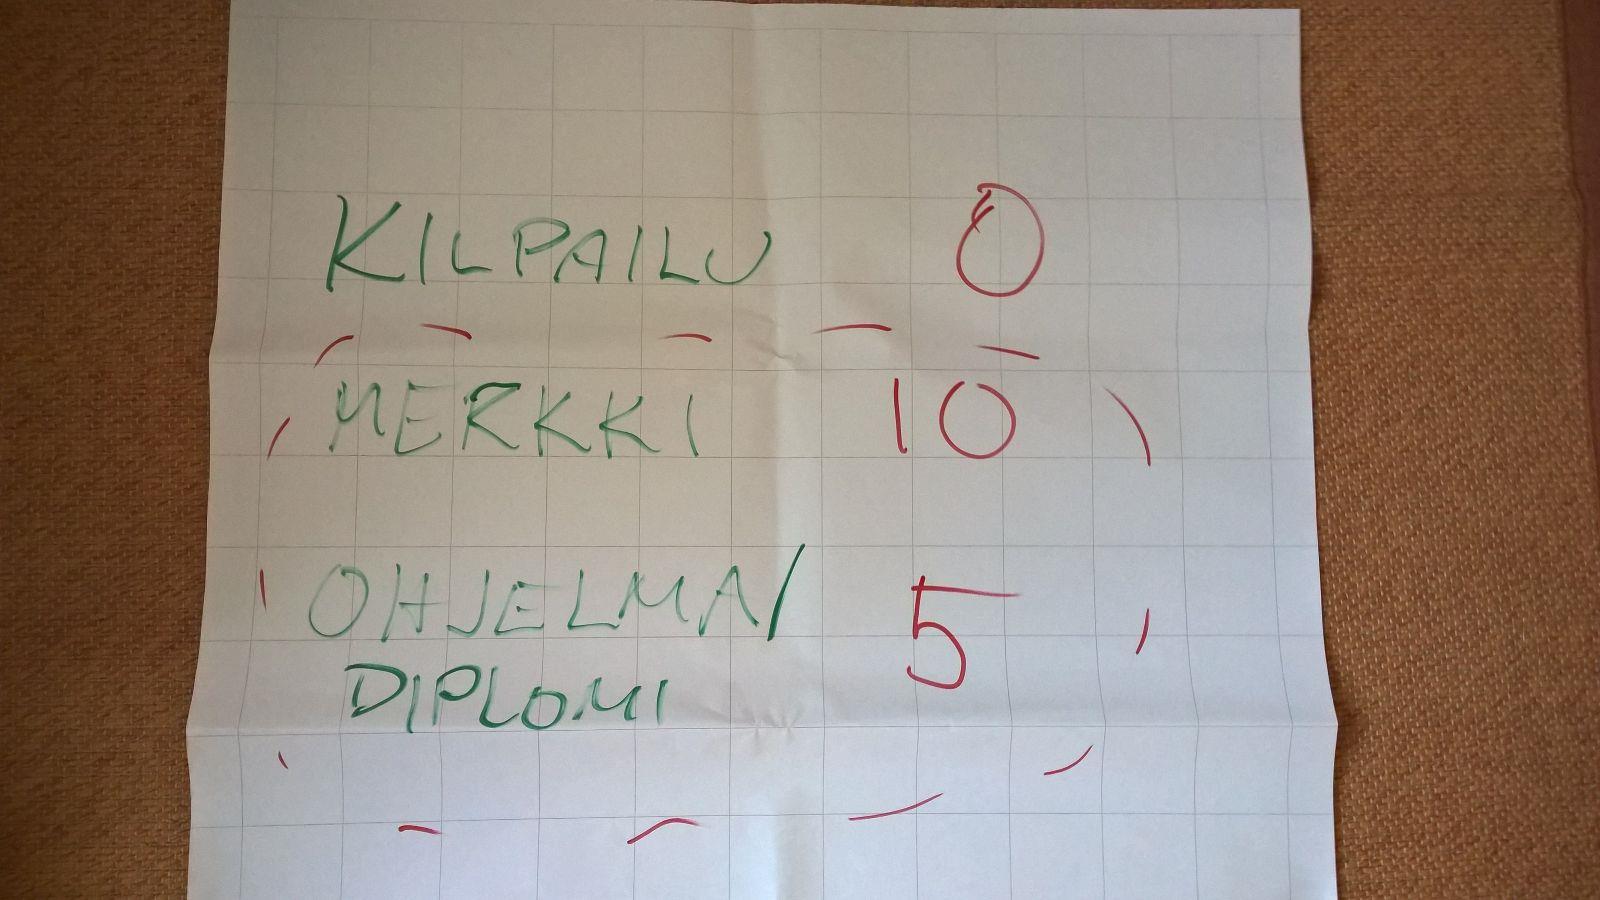 KILPAILU 0
MERKKI 10
OHJELMA/ 5
DIPLOMI